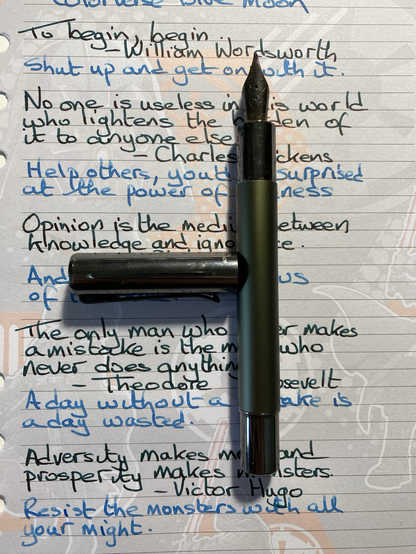 Colorverse Blue Moon
To begin, begin
- William Wordsworth
Shut up and get on with it.
No one is useless in this world
who lightens the den of
it to anyone else
- Charles Dickens
Help others, you'd surprised
at the power of
Opinion is the between
knowledge and
And
of
The only man who makes
a mistake is the who
never does anything
- Theodore Roosevelt
A day without a is
a day wasted.
Adversity makes and
prosperity makes monsters.
- Victor Hugo
Resist the monsters with all
your might.